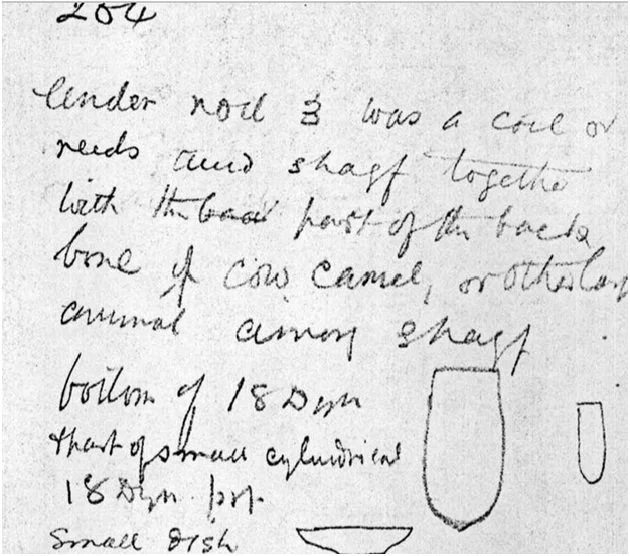 204
Under nod 3 was a coil or
reeds and shagf together
with the part of the back
bone of cow camel, or other large
animal among shagf
bottom of 18 Dyn
& part of small cylindrical
18 Dyn. pot.
Small dish